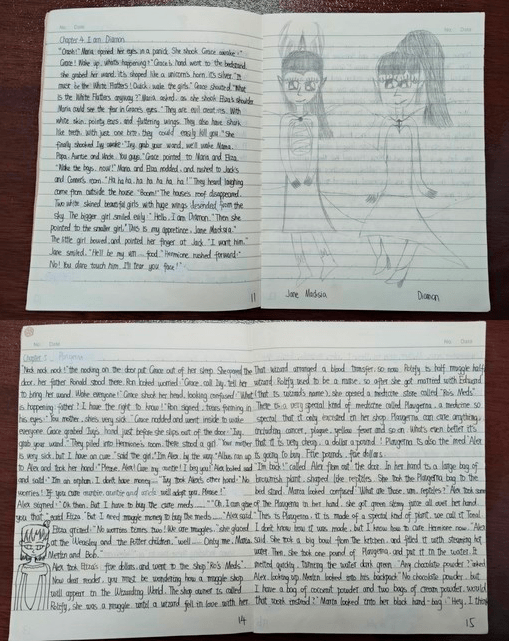 No.
Date
Chapter 4 I am Diamon.
"Crash!" Maria opened her eyes in a panick. She shook Grace awake. "
Grace! Wake up, what's happening?" Grace's hand went to the bedstand.
She grabbed her wand, it's shaped like a unicorn's horn, it's silver. "It
must be the White Flatters! Quick, wake the girls." Grace shouted. "What
is the White Flatters anyway?" Maria asked, as she shook Eliza's shoulder
Maria could see the fear in Grace's eyes. "They are evil creatures. With
white skin, pointy ears, and fluttering wings. They also have shark
like teeth. With just one bite, they could easily kill you." She
finally shocked Ivy awake. "Ivy, grab your wand, we'll wake Mama,
Papa, Auntie and Uncle. You guys." Grace pointed to Maria and Eliza.
"Wake the boys, now!" Maria and Eliza nodded, and rushed to Jack's
and Connor's room. "Ha ha ha, ha, ha, ha, ha!" They heard laughing
come from outside the house. "Boom!" The house's roof disappeared.
Two white skinned beautiful girls with huge wings desended from the
sky. The bigger girl smiled evily. "Hello, I am Diamon." Then she
pointed to the smaller girl. "This is my apprentice, Jane Macksia."
The little girl bowed, and pointed her finger at Jack. "I want him."
Jane smiled. "He'll be my win - food." Hermione rushed forward:"
No! You dare touch him, I'll tear you face!"
11
No.
Date
Jane Macksia
Diamon
No.
Date
Chapter Plangerna
"Nock nock nock!" the nocking on the door put Grace out of her sleep. She opened the
door, her father Ronald stood there. Ron looked worried. "Grace, call Ivy. Tell her
to bring her wand. Wake everyone!" Grace shook her head, looking confused. "What
is happening father? I have the right to know!" Ron signed, tears forming in
his eyes. "You mother, she's very sick." Grace nodded and went inside to wake
everyone. Grace grabbed Ivy's hand just before she slips out of the door. "Ivy,
grab your wand." They piled into Hermione's room. There stood a girl. "Your mother
is very sick, but I have an cure." said the girl. "I'm Alex, by the way." Alisa ran up
to Alex and took her hand. "Please, Alex! Cure my auntie! I beg you!" Alex looked sad
and said: "I'm an orphan. I don't have money." Ivy took Alex's other hand. "No
worries! If you cure auntie, auntie and uncle will adopt you, Please!"
Alex signed: "Oh then. But I have to buy the cure meds ..." "Oh, I can give
you that" said Eliza. "But I need muggle money to buy the meds......" Alex said.
Eliza grined: "No worries times two! We are muggles", she glaced
at the Weasley and the Potter children. "well.... Only me, Maria,
Merlin and Bob."
Alex took Eliza's five dollars and went to the shop "Ro's Meds".
Now dear reader, you must be wondering how a muggle shop
will appear in the Wizarding World. The shop owner is called
Rolify, she was a muggle until a wizard fell in love with her.
14
No.
Date
That wizard arranged a blood transfer, so now Rolify is half muggle half
wizard. Rolify used to be a nurse, so after she got married with Edward
(that is wizard's name) she opened a medicine store called "Ro's Meds".
There is a very special kind of medicine called Plangerna, a medicine so
special that it only exists in her shop. Plangerna can cure anything,
including cancer, plague, yellow fever and so on. What's even better it's
that it is very cheap, a dollar a pound! Plangerna is also the med Alex
is going to buy. Five pounds, five dollars.
"I'm back!" called Alex from out the door. In her hand is a large bag of
brownish plant, shaped like reptiles. She took the Plangerna bag to the
bed stand. Maria looked confused: "What are those, um.. reptiles?" Alex took some
of the Plangerna in her hand, she got green slimy juice all over her hand.
"This is Plangerna, it is made of a special kind of plant. we call it Tonal.
I don't know how it was made, but I know how to cure Hermione now." Alex
said. She took a big bowl from the kitchen, and filled it with steaming hot
water. Then, She took one pound of Plangerna, and put it in the water. It
melted quickly. Turning the water dark green. "Any chocolate powder?" asked
Alex, looking up. Merlin looked into his backpack: "No chocolate powder, but
I have a bag of coconut powder and two bags of cream powder, would
that work instead?" Maria looked into her black hand-bag: "Hey, I think
15